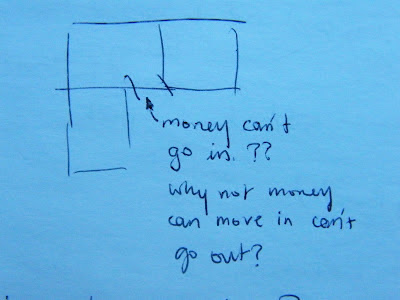 money can't
go in. ??
why not money
can move in can't
go out?